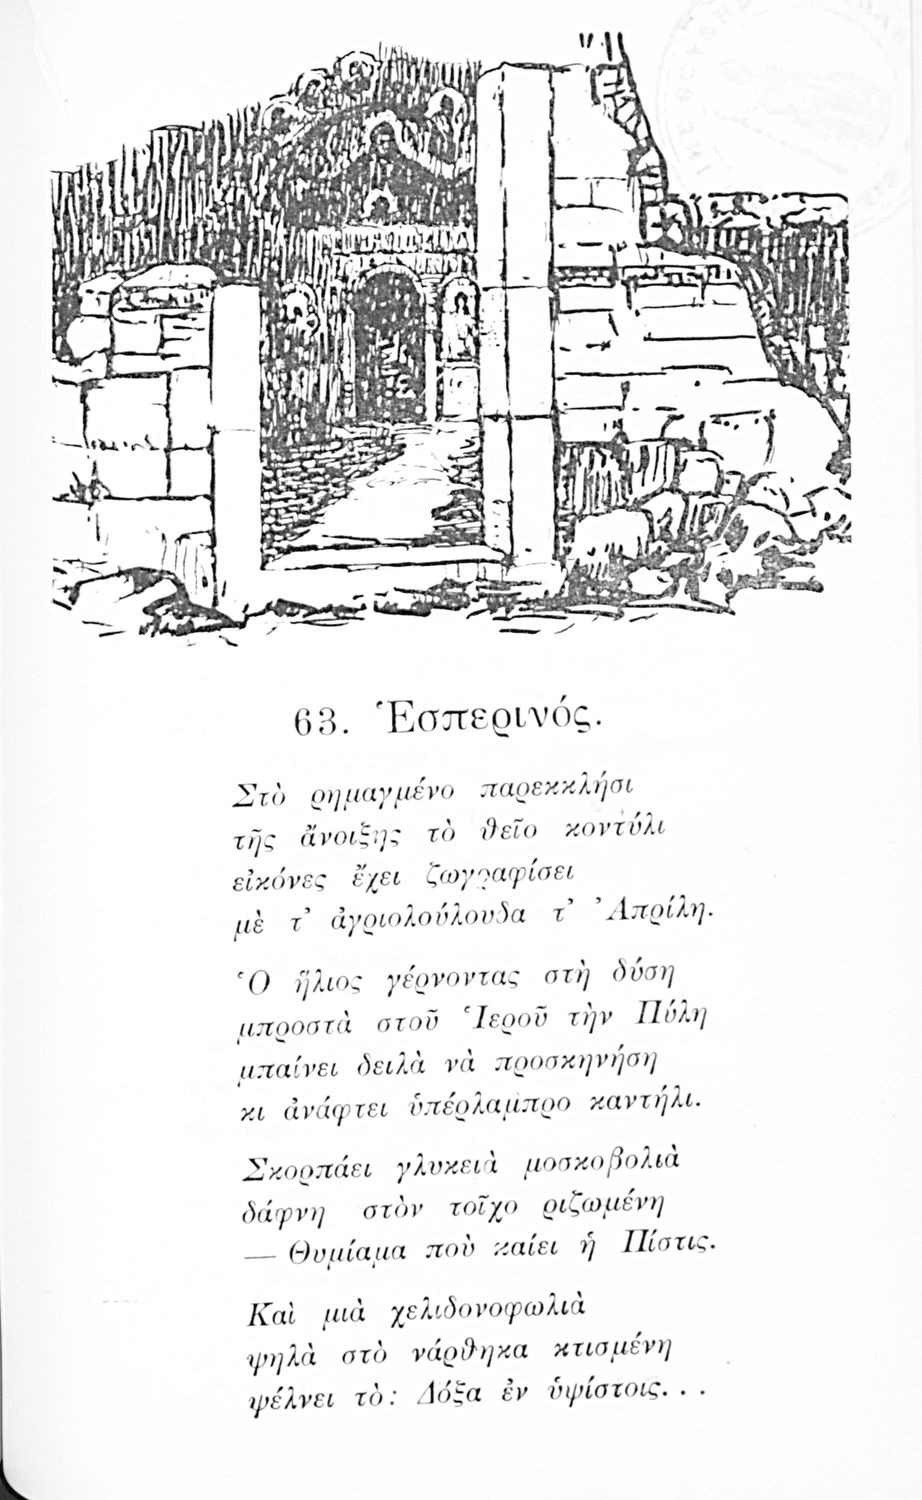 63. Ἑσπερινός.
Στὸ ρημαγμένο παρεκκλήσι
τῆς ἄνοιξης τὸ θεῖο κοντύλι
εἰκόνες ἔχει ζωγραφίσει
μὲ τ' ἀγριολούλουδα τ' Ἀπρίλη.
Ὁ ἥλιος γέρνοντας στὴ δύση
μπροστὰ στοῦ Ἱεροῦ τὴν Πύλη
μπαίνει δειλὰ νὰ προσκηνήση
κι ἀνάφτει ὑπέρλαμπρο καντήλι.
Σκορπάει γλυκειὰ μοσκοβολιὰ
δάφνη στὸν τοῖχο ριζωμένη
— Θυμίαμα ποὺ καίει ἡ Πίστις.
Καὶ μιὰ χελιδονοφωλιὰ
ψηλὰ στὸ νάρθηκα κτισμένη
ψέλνει τὸ: Δόξα ἐν ὑψίστοις...